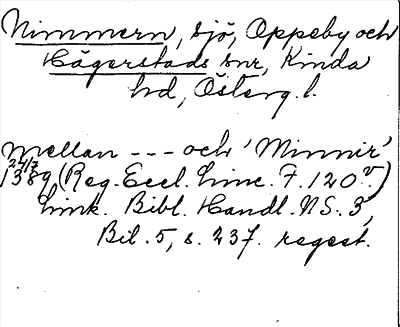 Nimmern, sjö, Oppeby och
Hägerstads snr, Kinda
hd, Österg. l.
mellan --- och 'Minnir'
24/7
1389 (Reg. Eccl. Linc. F. 120 v.)
Link. Bibl. Handl. NS. 3,
Bil. 5, s. 237. regest.